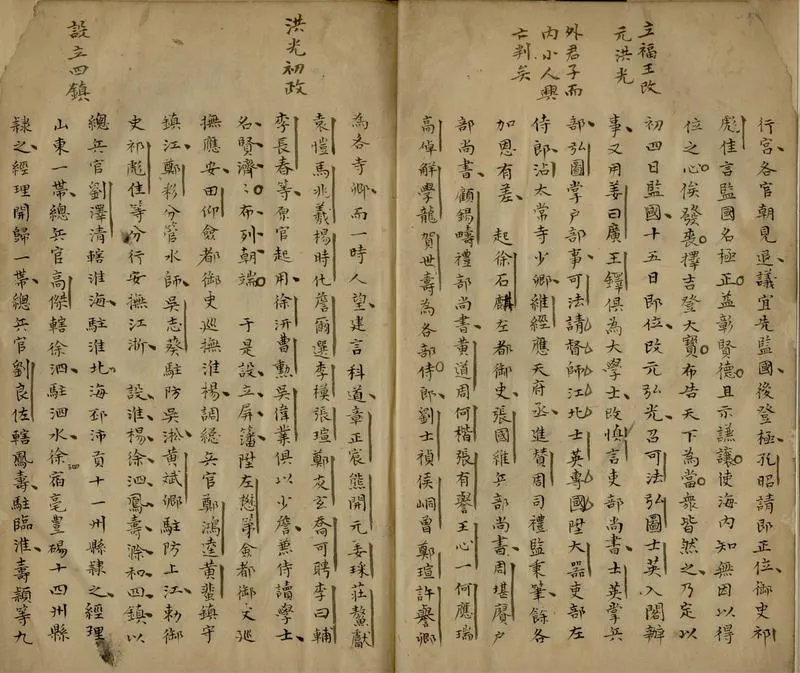 立福王改
元洪光
外君子而
內小人興
亡判矣
行宮各官朝見退議宜先監國後登極孔昭請即正位御史祁
彪佳言監國名極正益彰賢德且示謙讓使海內知無因以得
位之心俟發喪擇吉登大寶布告天下為當衆皆然之乃定以
初四日監國十五日即位改元弘光召可法弘圖士英入閣辦
事又用姜曰廣王鐸俱為大學士改慎言吏部尚書士英掌兵
部弘圖掌戶部事可法請督師江北士英專國陞大器吏部左
侍郎沾太常寺少卿維經應天府丞進贊周司禮監秉筆餘各
加恩有差 起徐石麒左都御史張國維兵部尚書周堪賡戶
部尚書顧錫疇禮部尚書黃道周何楷張有譽王心一何應瑞
高倬解學龍賀世壽為各部侍郎劉士禎侯峒曾鄭瑄許譽卿
洪光初政
設立四鎮
為各寺卿而一時人望建言科道章正宸熊開元姜埰莊鰲獻
袁愷馬兆羲楊時化詹爾選李模張瑄鄭友玄喬可聘李曰輔
李長春等原官起用徐汧曹勳吳偉業俱以少詹兼侍讀學士
名賢濟〻布列朝端 于是設立屏籓陞左懋第僉都御史巡
撫應安田仰僉都御史巡撫淮楊調總兵官鄭鴻逵黃蜚鎮守
鎮江鄭彩分管水師吳志葵駐防吳淞黃斌卿駐防上江勅御
史祁彪佳等分行安撫江浙 設淮楊徐泗鳳壽滁和四鎮以
總兵官劉澤清轄淮海駐淮北海邳沛贛十一州縣隸之經理
山東一帶總兵官高傑轄徐泗駐泗水徐泗宿亳豐碭十四州縣
隸之經理開歸一帶總兵官劉良佐轄鳳壽駐臨淮壽潁等九